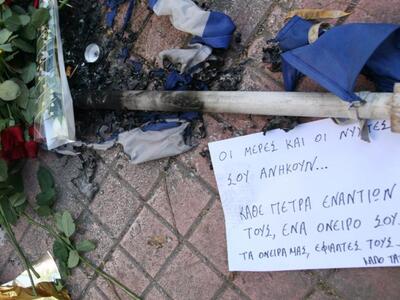 ΟΙ ΜΕΡΕΣ ΚΑΙ ΟΙ ΝΥΧΤΕΣ
ΣΟΥ ΑΝΗΚΟΥΝ...
ΚΑΘΕ ΠΕΤΡΑ ΕΝΑΝΤΙΩΝ
ΤΟΥΣ, ΕΝΑ ΟΝΕΙΡΟ ΣΟΥ.
ΤΑ ΟΝΕΙΡΑ ΜΑΣ, ΕΦΙΑΛΤΕΣ ΤΟΥΣ...